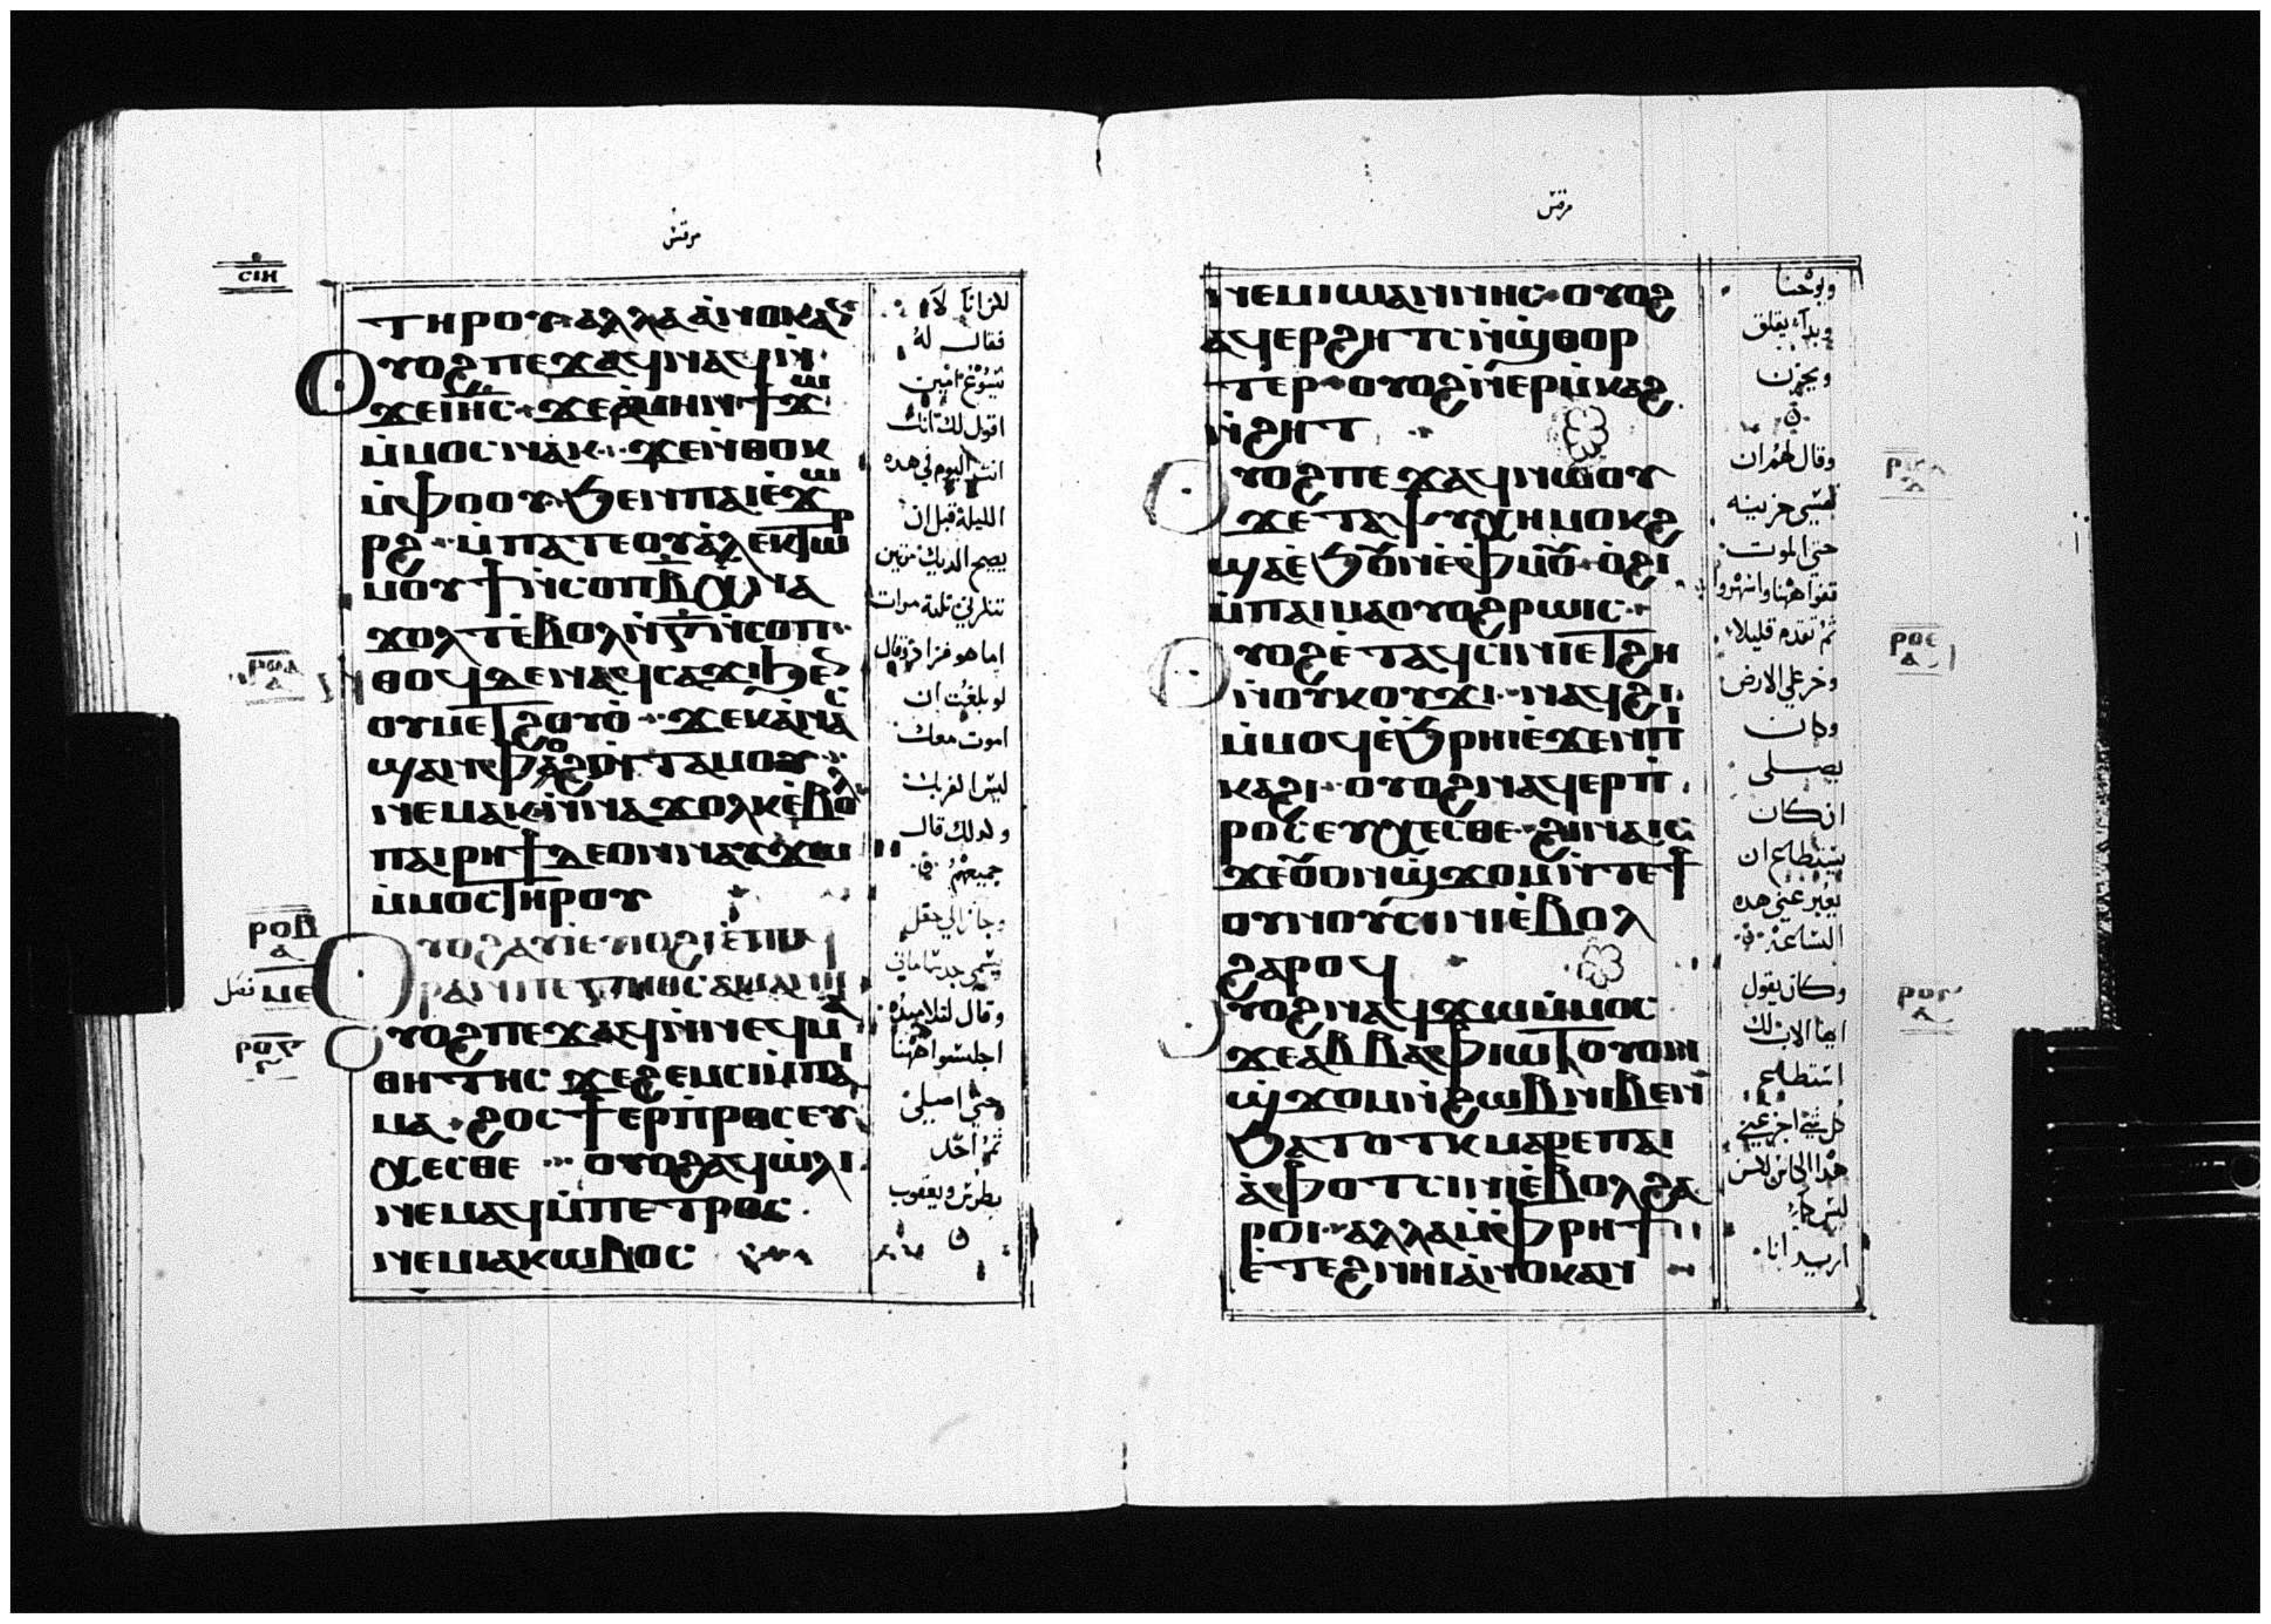 مرقس
ⲥⲓⲏ
ⲧⲏⲣⲟⲩ ⲁⲗⲗⲁ ⲁⲛⲟⲕ ⲁⲛ
ⲟⲩⲟϩ ⲡⲉϫⲁϥ ⲛⲁϥ ⲛ
ϫⲉ ⲓⲏⲥ ϫⲉ ⲁⲙⲏⲛ ϯϫⲱ
ⲙⲙⲟⲥ ⲛⲁⲕ ϫⲉ ⲛⲑⲟⲕ
ⲙⲫⲟⲟⲩ ϧⲉⲛ ⲡⲁⲓⲉϫⲱ
ⲣϩ ⲙⲡⲁⲧⲉ ⲟⲩⲁⲗⲉⲕⲧⲱⲣ
ⲙⲟⲩϯ ⲛⲥⲟⲡ ⲃ ⲭⲛⲁ
ϫⲟⲗⲧ ⲉⲃⲟⲗ ⲛⲅ ⲛⲥⲟⲡ
ⲑⲟϥ ⲇⲉ ⲛⲁϥⲥⲁϫⲓ ϧⲉⲛ
ⲟⲩⲙⲉⲧϩⲟⲩⲟ ϫⲉ ⲕⲁⲛ ⲁⲥ
ϣⲁⲛⲫⲟϩ ⲛⲧⲁⲙⲟⲩ
ⲛⲉⲙⲁⲕ ⲛⲛⲁϫⲟⲗⲕ ⲉⲃⲟⲗ
ⲡⲁⲓⲣⲏϯ ⲇⲉ ⲟⲛ ⲛⲁⲩϫⲱ
ⲙⲙⲟⲥ ⲧⲏⲣⲟⲩ
ⲣⲟⲃ
ⲁ
ⲙⲉ فصل
ⲟⲩⲟϩ ⲁⲩⲓ ⲉⲩⲓⲟϩⲓ ⲉⲡⲉϥ
ⲣⲁⲛ ⲡⲉ
ⲟⲩⲟϩ ⲡⲉϫⲁϥ ⲛⲛⲉϥⲙⲁ
ⲑⲏⲧⲏⲥ ϫⲉ ϩⲉⲙⲥⲓ ⲙⲡⲁⲓ
ⲙⲁ ϩⲟⲥ ϯⲉⲣⲡⲣⲟⲥⲉⲩ
ⲭⲉⲥⲑⲉ ⲟⲩⲟϩ ⲁϥⲱⲗⲓ
ⲛⲉⲙⲁϥ ⲙⲡⲉⲧⲣⲟⲥ
ⲛⲉⲙ ⲓⲁⲕⲱⲃⲟⲥ
لكن انا لا
فقال له
يسوع امين
اقول لك انك
انت اليوم في هده
الليلة قبل ان
يصيح الديك مرتين
تنكرني تلتة مرات
لو بلغت ان
اموت معك
ولدلك قال
جميعهم
وجازا الي حقل
وقال لتلاميذه
اجلسوا ههنا
حتي اصلي
ثم اخد
بطرس ويعقوب
مرقس
ⲛⲉⲙ ⲓⲱⲁⲛⲛⲏⲥ ⲟⲩⲟϩ
ⲁϥⲉⲣϩⲏⲧⲥ ⲛϣⲑⲟⲣ
ⲧⲉⲣ ⲟⲩⲟϩ ⲛⲉⲣⲙⲕⲁϩ
ⲛϩⲏⲧ
ⲟⲩⲟϩ ⲡⲉϫⲁϥ ⲛⲱⲟⲩ
ϫⲉ ⲧⲁⲯⲩⲭⲏ ⲙⲟⲕϩ
ϣⲁ ⲉϧⲟⲩⲛ ⲉⲫⲙⲟⲩ ⲟϩⲓ
ⲙⲡⲁⲓⲙⲁ ⲟⲩⲟϩ ⲣⲱⲓⲥ
ⲟⲩⲟϩ ⲉⲧⲁϥⲥⲓⲛⲓ ⲉⲧϩⲏ
ⲛⲟⲩⲕⲟⲩϫⲓ ⲛⲁϥϩⲓ
ⲙⲙⲟϥ ⲉϧⲣⲏⲓ ⲉϫⲉⲛ ⲡⲓ
ⲕⲁϩⲓ ⲟⲩⲟϩ ⲛⲁϥⲉⲣⲡ
ⲣⲟⲥⲉⲩⲭⲉⲥⲑⲉ ϩⲓⲛⲁ ⲓⲥ
ϫⲉ ⲟⲩⲟⲛ ϣϫⲟⲙ ⲛⲧⲉ ϯ
ⲟⲩⲛⲟⲩ ⲥⲓⲛⲓ ⲉⲃⲟⲗ
ϩⲁⲣⲟϥ
ⲟⲩⲟϩ ⲛⲁϥϫⲱ ⲙⲙⲟⲥ
ϫⲉ ⲁⲃⲃⲁ ⲫⲓⲱⲧ ⲟⲩⲟⲛ
ϣϫⲟⲙ ⲛϩⲱⲃ ⲛⲓⲃⲉⲛ
ϧⲁⲧⲟⲧⲕ ⲙⲁⲣⲉ ⲡⲁⲓ
ⲁⲫⲟⲧ ⲥⲓⲛⲓ ⲉⲃⲟⲗ ϩⲁ
ⲣⲟⲓ ⲁⲗⲗⲁ ⲙⲫⲣⲏϯ
ⲉⲧⲉϩⲛⲏⲓ ⲁⲛⲟⲕ ⲁⲛ
ويوحنا
وبدا يقلق
ويحزن
وقال لهم ان
نفسي حزينه
حتي الموت
قفوا ههنا واسهروا
ثم تقدم قليلا
وخر علي الارض
وكان
يصلي
ان كان
يستطاع ان
يعبر عني هده
الساعة
وكان يقول
ايها الاب لك
استطاع
كل شي اجز عني
هدا الكاس لكن
ليس كما
اريد انا
ⲣⲟⲉ
ⲁ